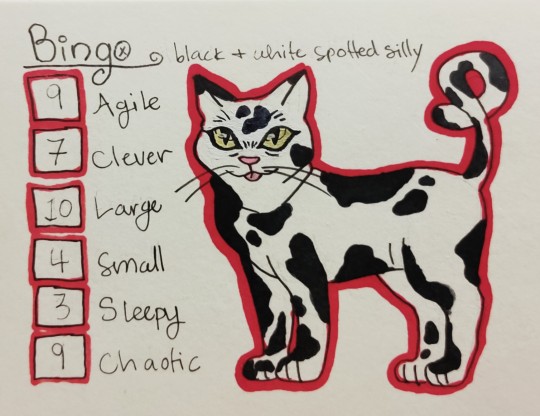 Bingo black + white spotted silly
9 Agile
7 Clever
10 Large
4 Small
3 Sleepy
9 Chaotic